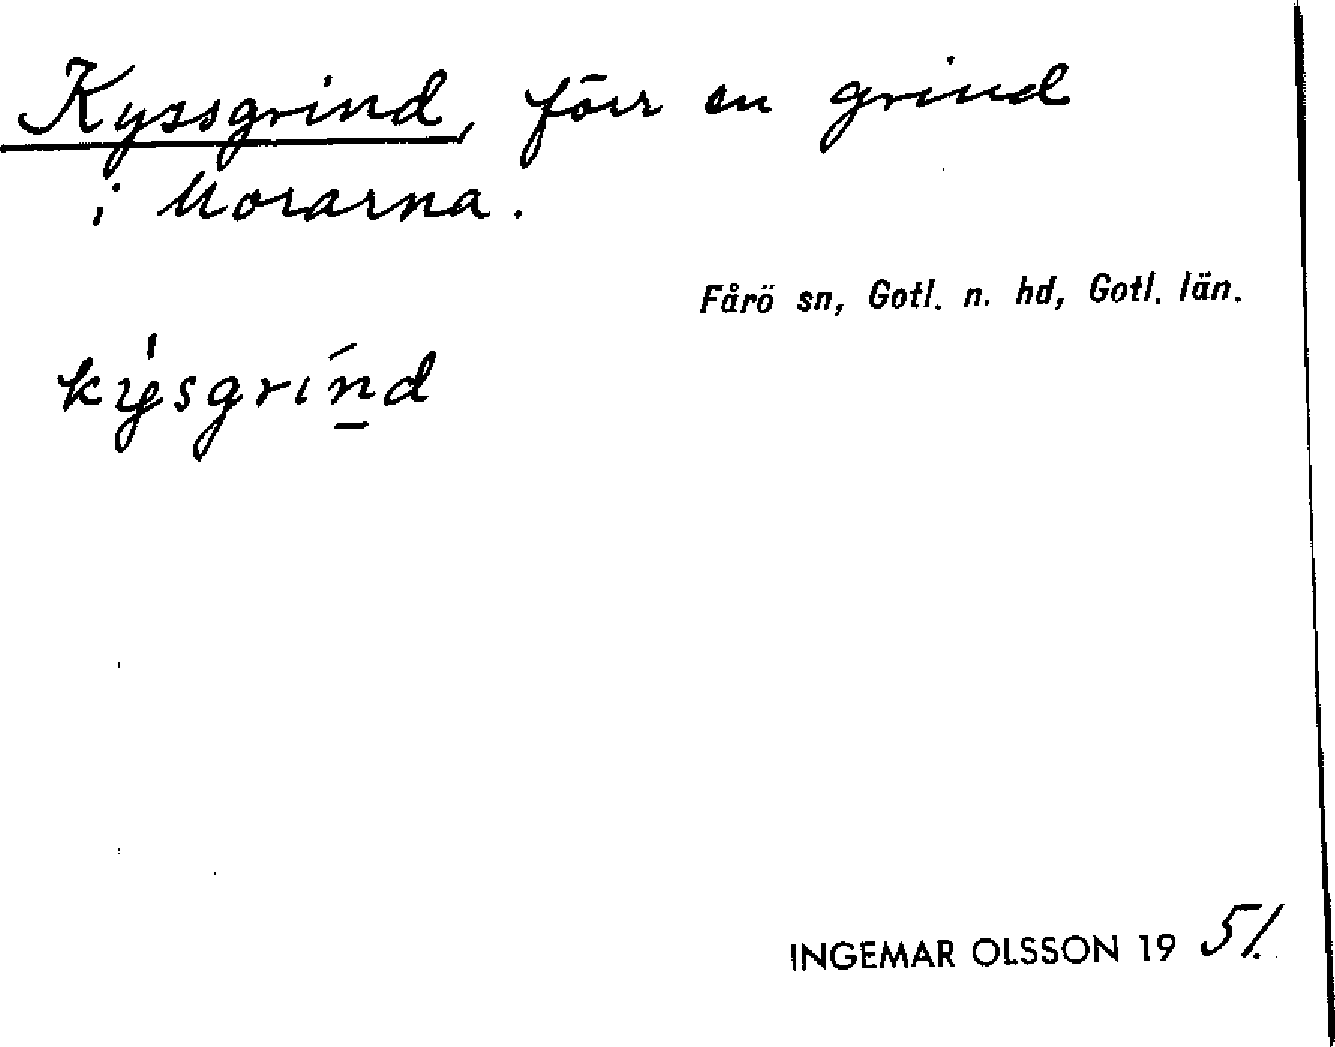 Kyssgrind, förr en grind
i Morarna.
Fårö sn, Gotl. n. hd, Gotl. län.
kýsgrín̲d
INGEMAR OLSSON 1951.